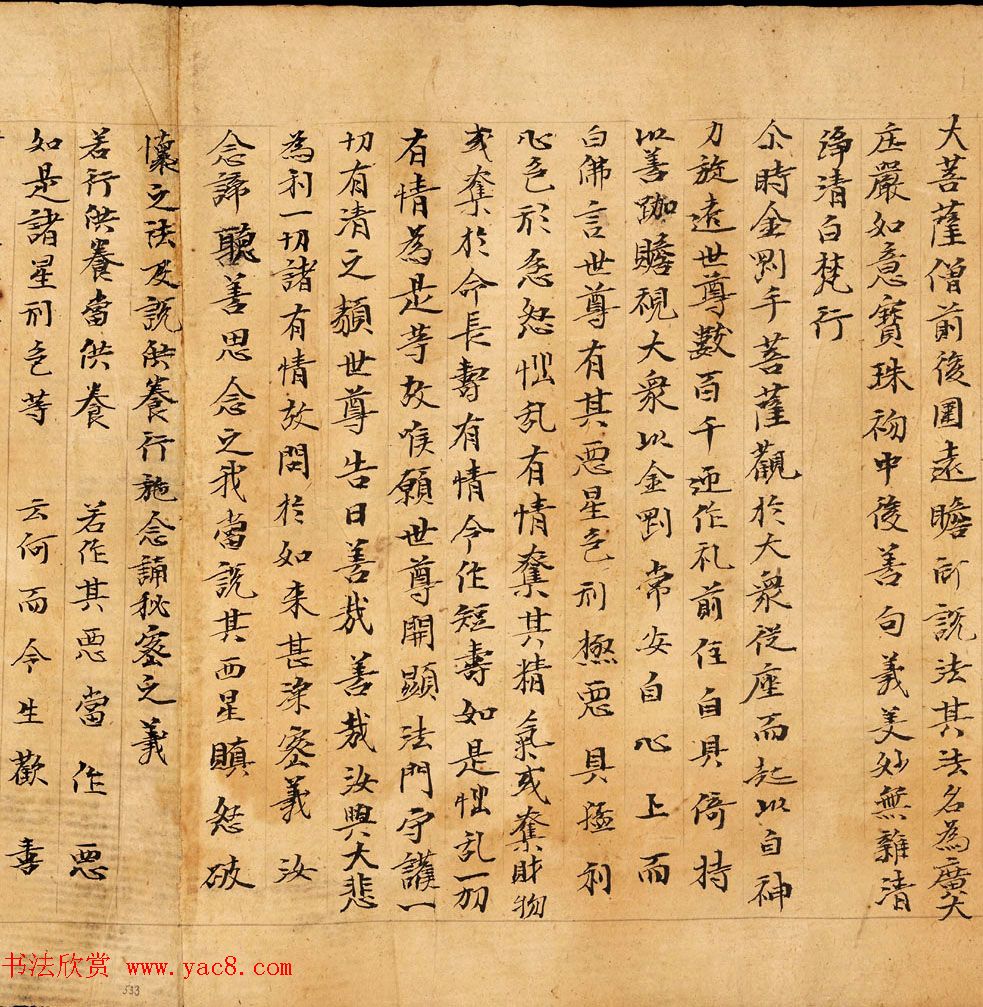 大菩薩僧前後圍遶瞻所說法其法名為廣大
庄嚴如意寶珠初中後善句義美妙無雜清
淨清白梵行
尒時金剛手菩薩觀於大衆從座而起以自神
力旋遶世尊數百千迊作礼前住自具倚持
以善跏瞻視大衆以金剛常安自心上而
白佛言世尊有其惡星色刑極惡具猛利
心色形忿怒惱乱有情奪其精氣或奪財物
或奪於命長壽有情令作短壽如是惱乱一切
有情為是等故唯願世尊開顯法門守護一
切有清之類世尊告曰善哉善哉汝興大悲
為利一切諸有情故問於如来甚深密義汝
念諦聽善思念之我當說其西星瞋怒破
懷之法及說供養行施念誦秘密之義
若行供養當供養 若作其惡當作惡
如是諸星刑色等 云何而令生歡喜
书法欣赏 www.yac8.com
533